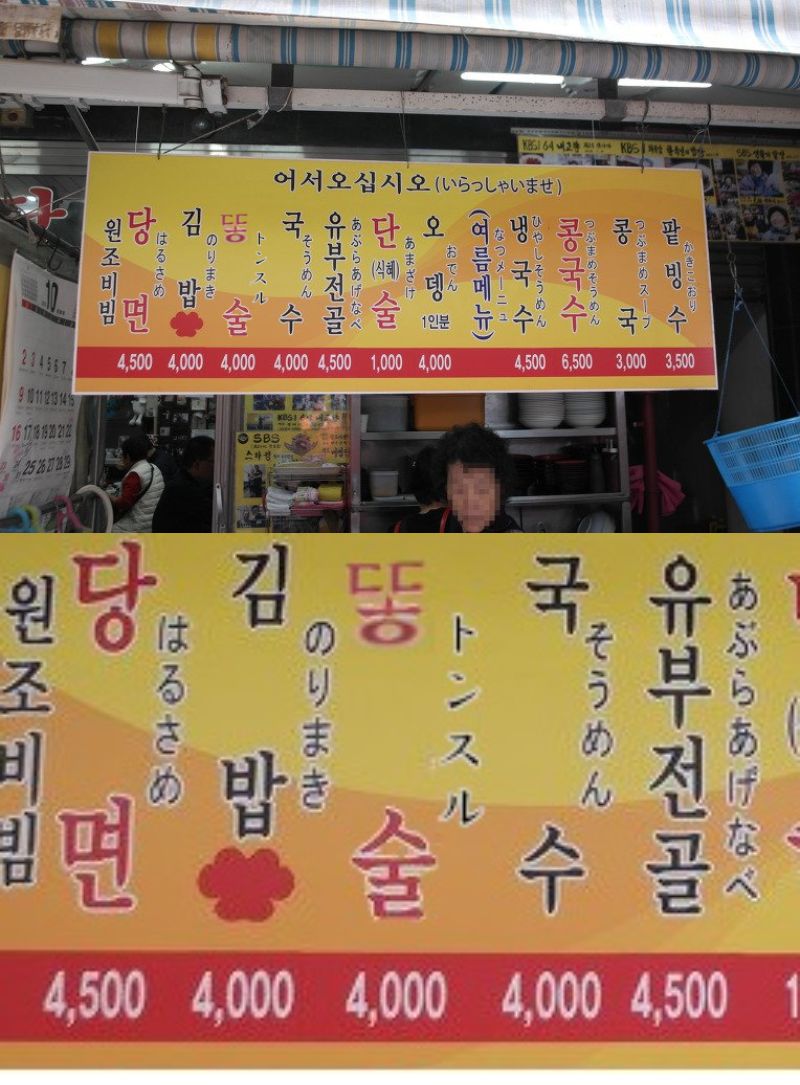 KBS1 6시 내고향
KBS1
SBS 생활의 달인
어서오십시오(いらっしゃいませ)
원조비빔
당면
はるさめ
김밥
のりまき
똥술
トンスル
국수
そうめん
유부전골
あぶらあげなべ
단술
(식혜)
あまざけ
오뎅
おでん
1인분
(여름메뉴)
なつメーニュ
냉국수
ひやしそうめん
콩국수
つぶまめそうめん
콩국
つぶまめスープ
팥빙수
かきこおり
4,500 4,000 4,000 4,000 4,500 1,000 4,000 4,500 6,500 3,000 3,500
10
2 3 4 5 6 7 8
9 10 11 12 13 14 15
16 17 18 19 20 21 22
25 26 27 28 29
SBS
원조비빔
당면
はるさめ
김밥
のりまき
똥술
トンスル
국수
そうめん
유부전골
あぶらあげなべ
4,500 4,000 4,000 4,000 4,500 1